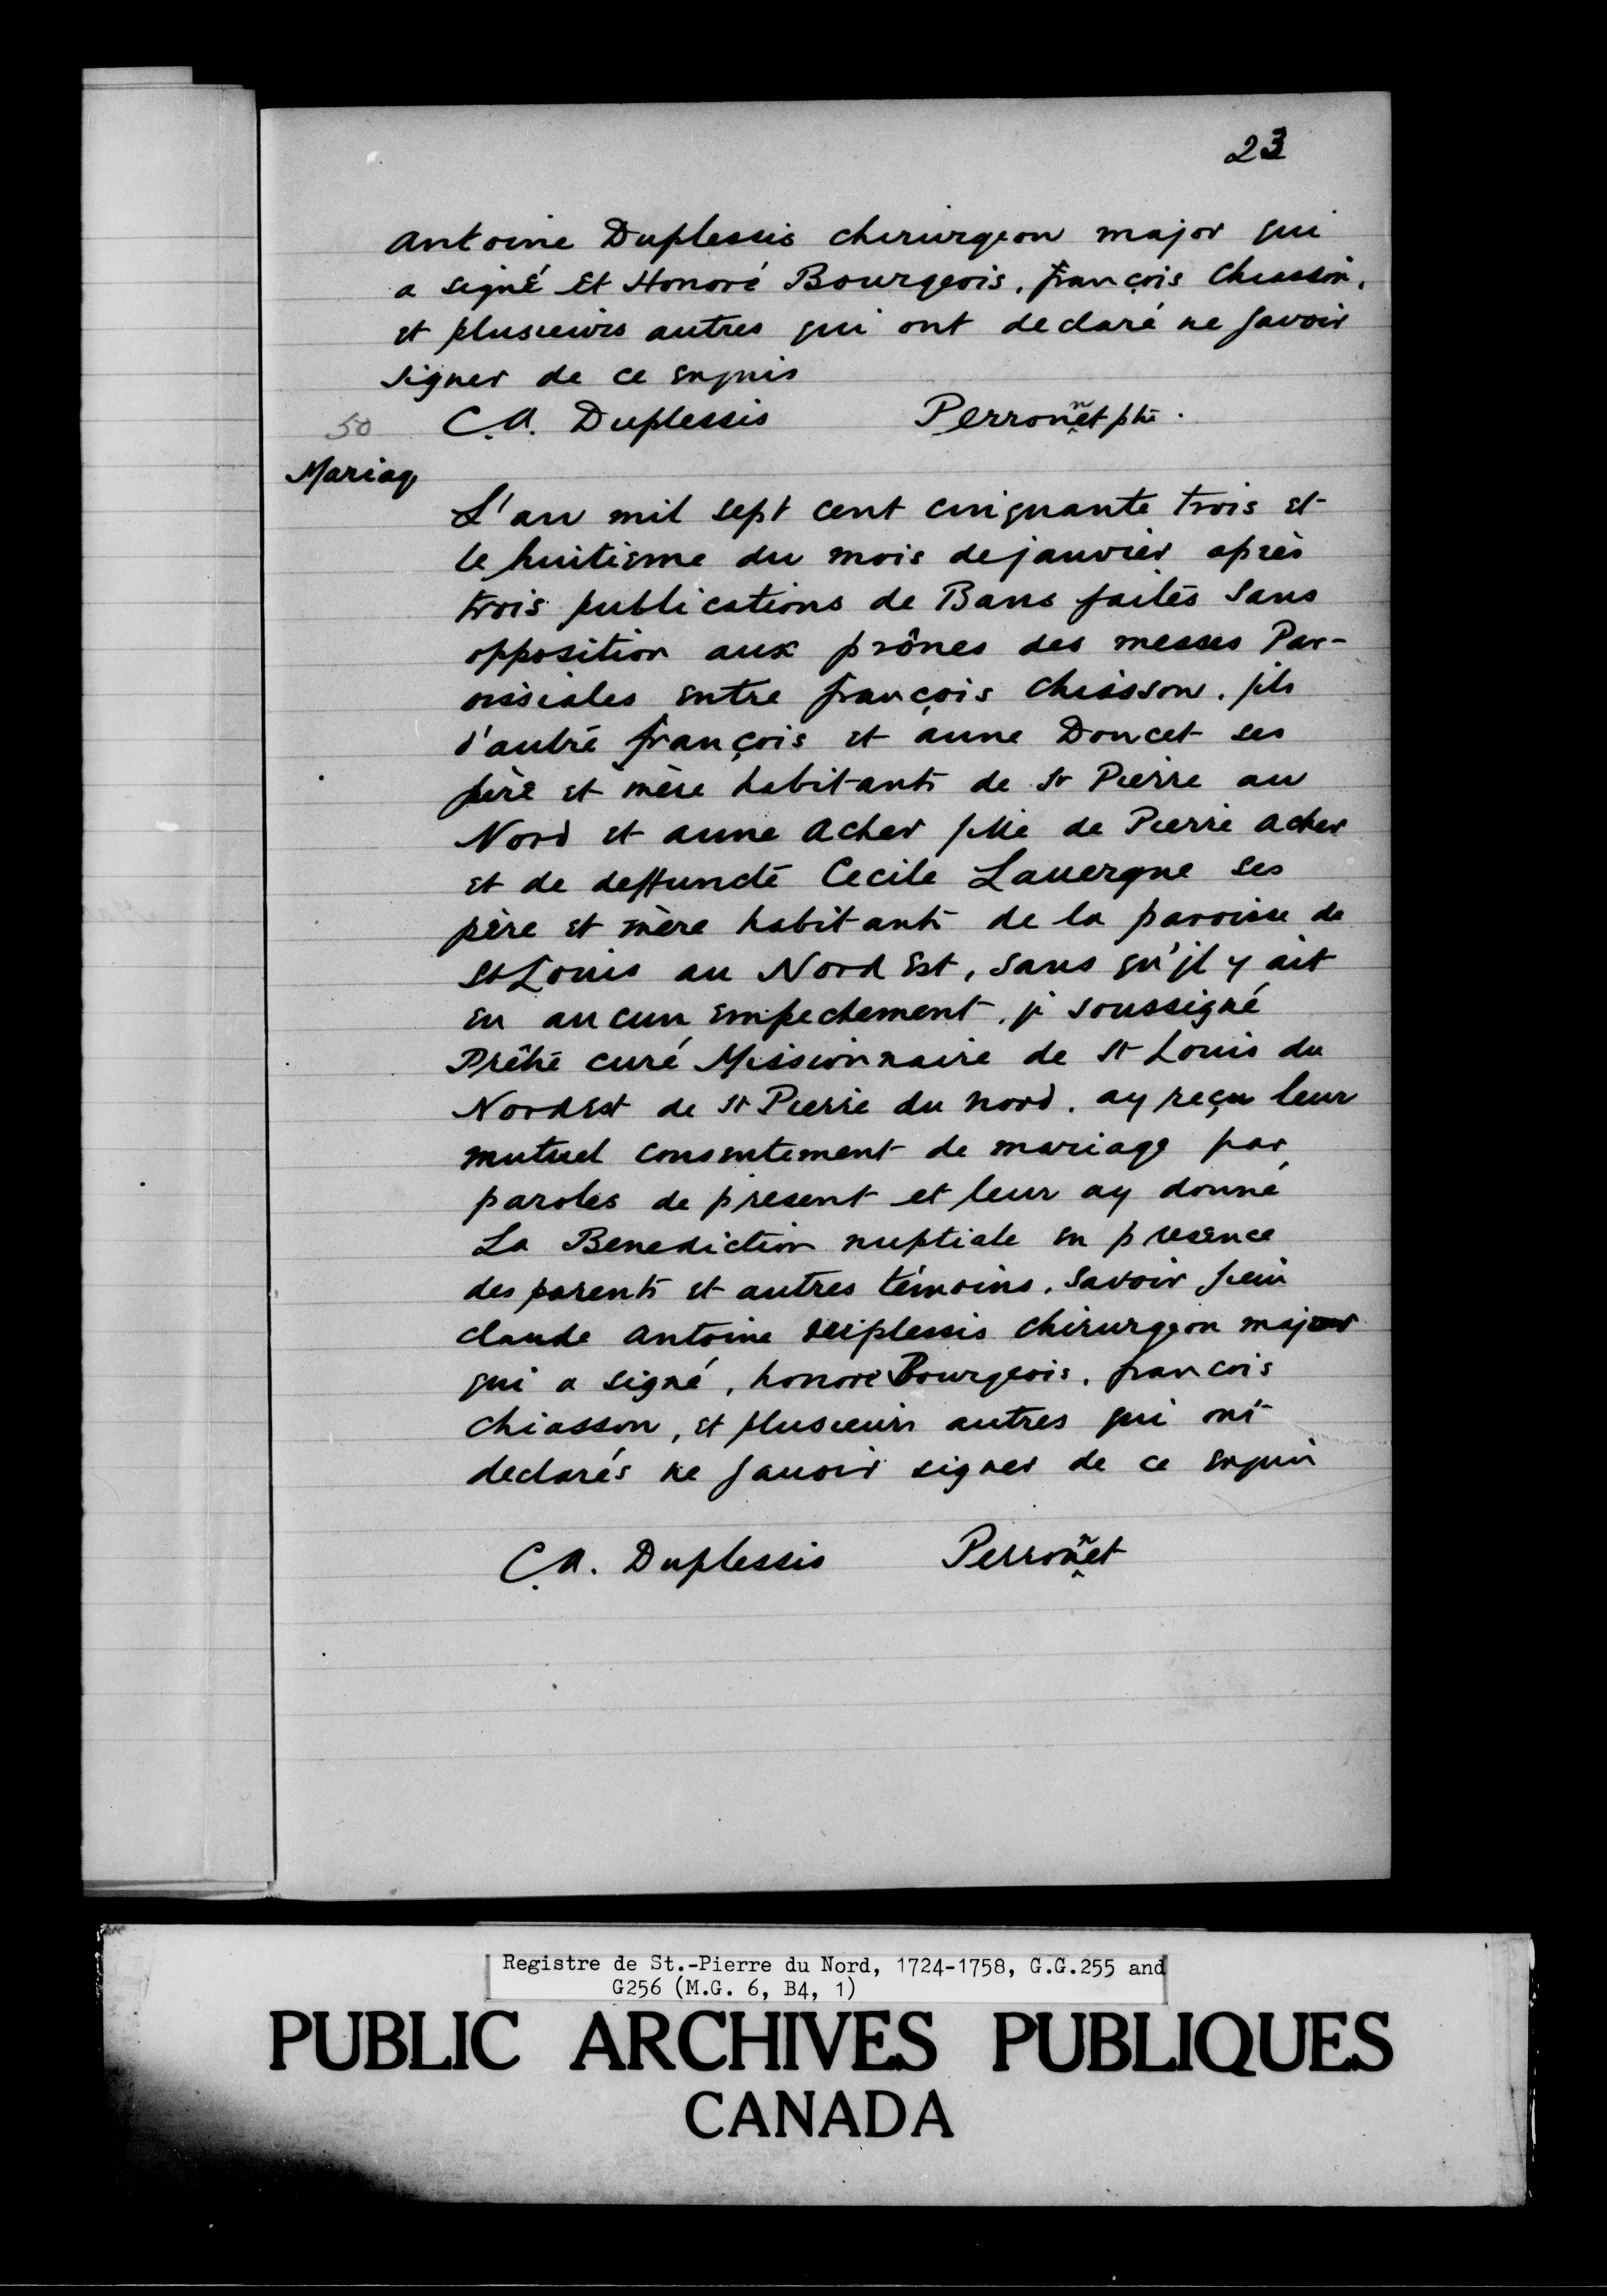 23
Antoine Duplessis chirurgeon major qui
a signé Et Honoré Bourgeois, françois Chiasson,
et plusieurs autres qui ont declaré ne savoir
signer de ce enquis
C.A. Duplessis Perronnet ptre.
50
Mariag
L'an mil sept cent cinquante trois et
le huitisme du mois de janvier après
trois publications de Bans faites sans
opposition aux prônes des messes Par-
oissiales entre françois chiasson, fils
d'autre françois et anne Doucet ses
père et mère habitants de St Pierre au
Nord et anne acher fille de Pierre acher
et de deffuncte Cecile Lauergne ses
père et mère habitants de la paroisse de
St Louis au Nord Est, sans qu'jl y ait
eu aucun empechement, je soussigné
Prêtre curé Missionnaire de St Louis du
Nordest de St Pierre du nord, ay reçu leur
mutuel consentement de mariage par
paroles de present et leur ay donné
La Benediction nuptiale en presence
des parents et autres témoins, savoir
claude antoine duplessis chirurgeon major
qui a signé, honoré Bourgeois, francois
chiasson, et plusieurs autres qui ont
declarés ne sauoir signer de ce enquis
C.A. Duplessis Perronnet
Registre de St.-Pierre du Nord, 1724-1758, G.G.255 and
G256 (M.G. 6, B4, 1)
PUBLIC ARCHIVES PUBLIQUES
CANADA